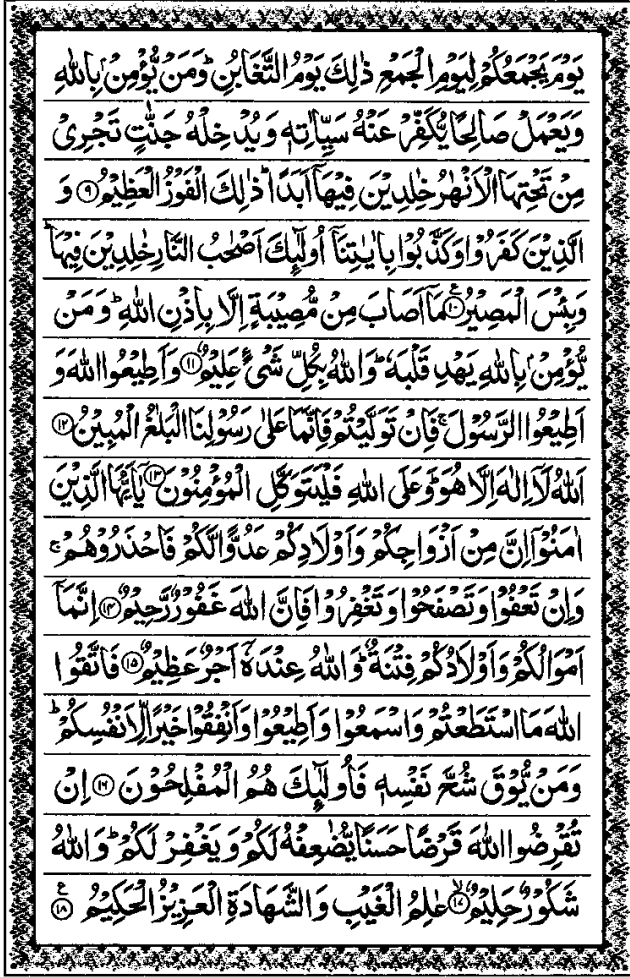 يَوْمَ يَجْمَعُكُمْ لِيَوْمِ الْجَمْعِ ذٰلِكَ يَوْمُ التَّغَابُنِ ؕ وَمَنْ يُّؤْمِنْۢ بِاللّٰهِ
وَيَعْمَلْ صَالِحًا يُّكَفِّرْ عَنْهُ سَيِّاٰتِهٖ وَيُدْخِلْهُ جَنّٰتٍ تَجْرِيْ
مِنْ تَحْتِهَا الْاَنْهٰرُ خٰلِدِيْنَ فِيْهَاۤ اَبَدًا ؕ ذٰلِكَ الْفَوْزُ الْعَظِيْمُ ۝۹ وَ
الَّذِيْنَ كَفَرُوْا وَكَذَّبُوْا بِاٰيٰتِنَاۤ اُولٰٓئِكَ اَصْحٰبُ النَّارِ خٰلِدِيْنَ فِيْهَا ؕ
وَبِئْسَ الْمَصِيْرُ ۝۱۰ؑ مَاۤ اَصَابَ مِنْ مُّصِيْبَةٍ اِلَّا بِاِذْنِ اللّٰهِ ؕ وَمَنْ
يُّؤْمِنْۢ بِاللّٰهِ يَهْدِ قَلْبَهٗ ؕ وَاللّٰهُ بِكُلِّ شَيْءٍ عَلِيْمٌ ۝۱۱ وَاَطِيْعُوا اللّٰهَ وَ
اَطِيْعُوا الرَّسُوْلَ ۚ فَاِنْ تَوَلَّيْتُمْ فَاِنَّمَا عَلٰى رَسُوْلِنَا الْبَلٰغُ الْمُبِيْنُ ۝۱۲
اَللّٰهُ لَاۤ اِلٰهَ اِلَّا هُوَ ؕ وَعَلَى اللّٰهِ فَلْيَتَوَكَّلِ الْمُؤْمِنُوْنَ ۝۱۳ يٰۤاَيُّهَا الَّذِيْنَ
اٰمَنُوْۤا اِنَّ مِنْ اَزْوَاجِكُمْ وَاَوْلَادِكُمْ عَدُوًّا لَّكُمْ فَاحْذَرُوْهُمْ ۚ
وَاِنْ تَعْفُوْا وَتَصْفَحُوْا وَتَغْفِرُوْا فَاِنَّ اللّٰهَ غَفُوْرٌ رَّحِيْمٌ ۝۱۴ اِنَّمَاۤ
اَمْوَالُكُمْ وَاَوْلَادُكُمْ فِتْنَةٌ ؕ وَاللّٰهُ عِنْدَهٗۤ اَجْرٌ عَظِيْمٌ ۝۱۵ فَاتَّقُوا
اللّٰهَ مَا اسْتَطَعْتُمْ وَاسْمَعُوْا وَاَطِيْعُوْا وَاَنْفِقُوْا خَيْرًا لِّاَنْفُسِكُمْ ؕ
وَمَنْ يُّوْقَ شُحَّ نَفْسِهٖ فَاُولٰٓئِكَ هُمُ الْمُفْلِحُوْنَ ۝۱۶ اِنْ
تُقْرِضُوا اللّٰهَ قَرْضًا حَسَنًا يُّضٰعِفْهُ لَكُمْ وَيَغْفِرْ لَكُمْ ؕ وَاللّٰهُ
شَكُوْرٌ حَلِيْمٌ ۝۱۷ۙ عٰلِمُ الْغَيْبِ وَالشَّهَادَةِ الْعَزِيْزُ الْحَكِيْمُ ۝۱۸ؑ